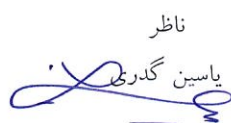 ناظر
یاسین گدری